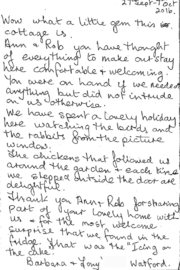 27 Sept - 7 Oct
2016.
Now what a little gem this
cottage is.
Ann & Rob you have thought
of everything to make our stay
here comfortable & welcoming.
You were on hand if we needed
anything but did not intrude
on us otherwise.
We have spent a lovely holiday
here watching the birds and
the rabbits from the picture
window.
The chickens that followed us
around the garden & each time
we stepped outside the door are
delightful.
Thank you Ann & Rob for sharing
part of your lovely home with
us & for the most welcome
surprise that we found in the
fridge. That was the "Icing on
the cake".
Barbara & Tony Watford.